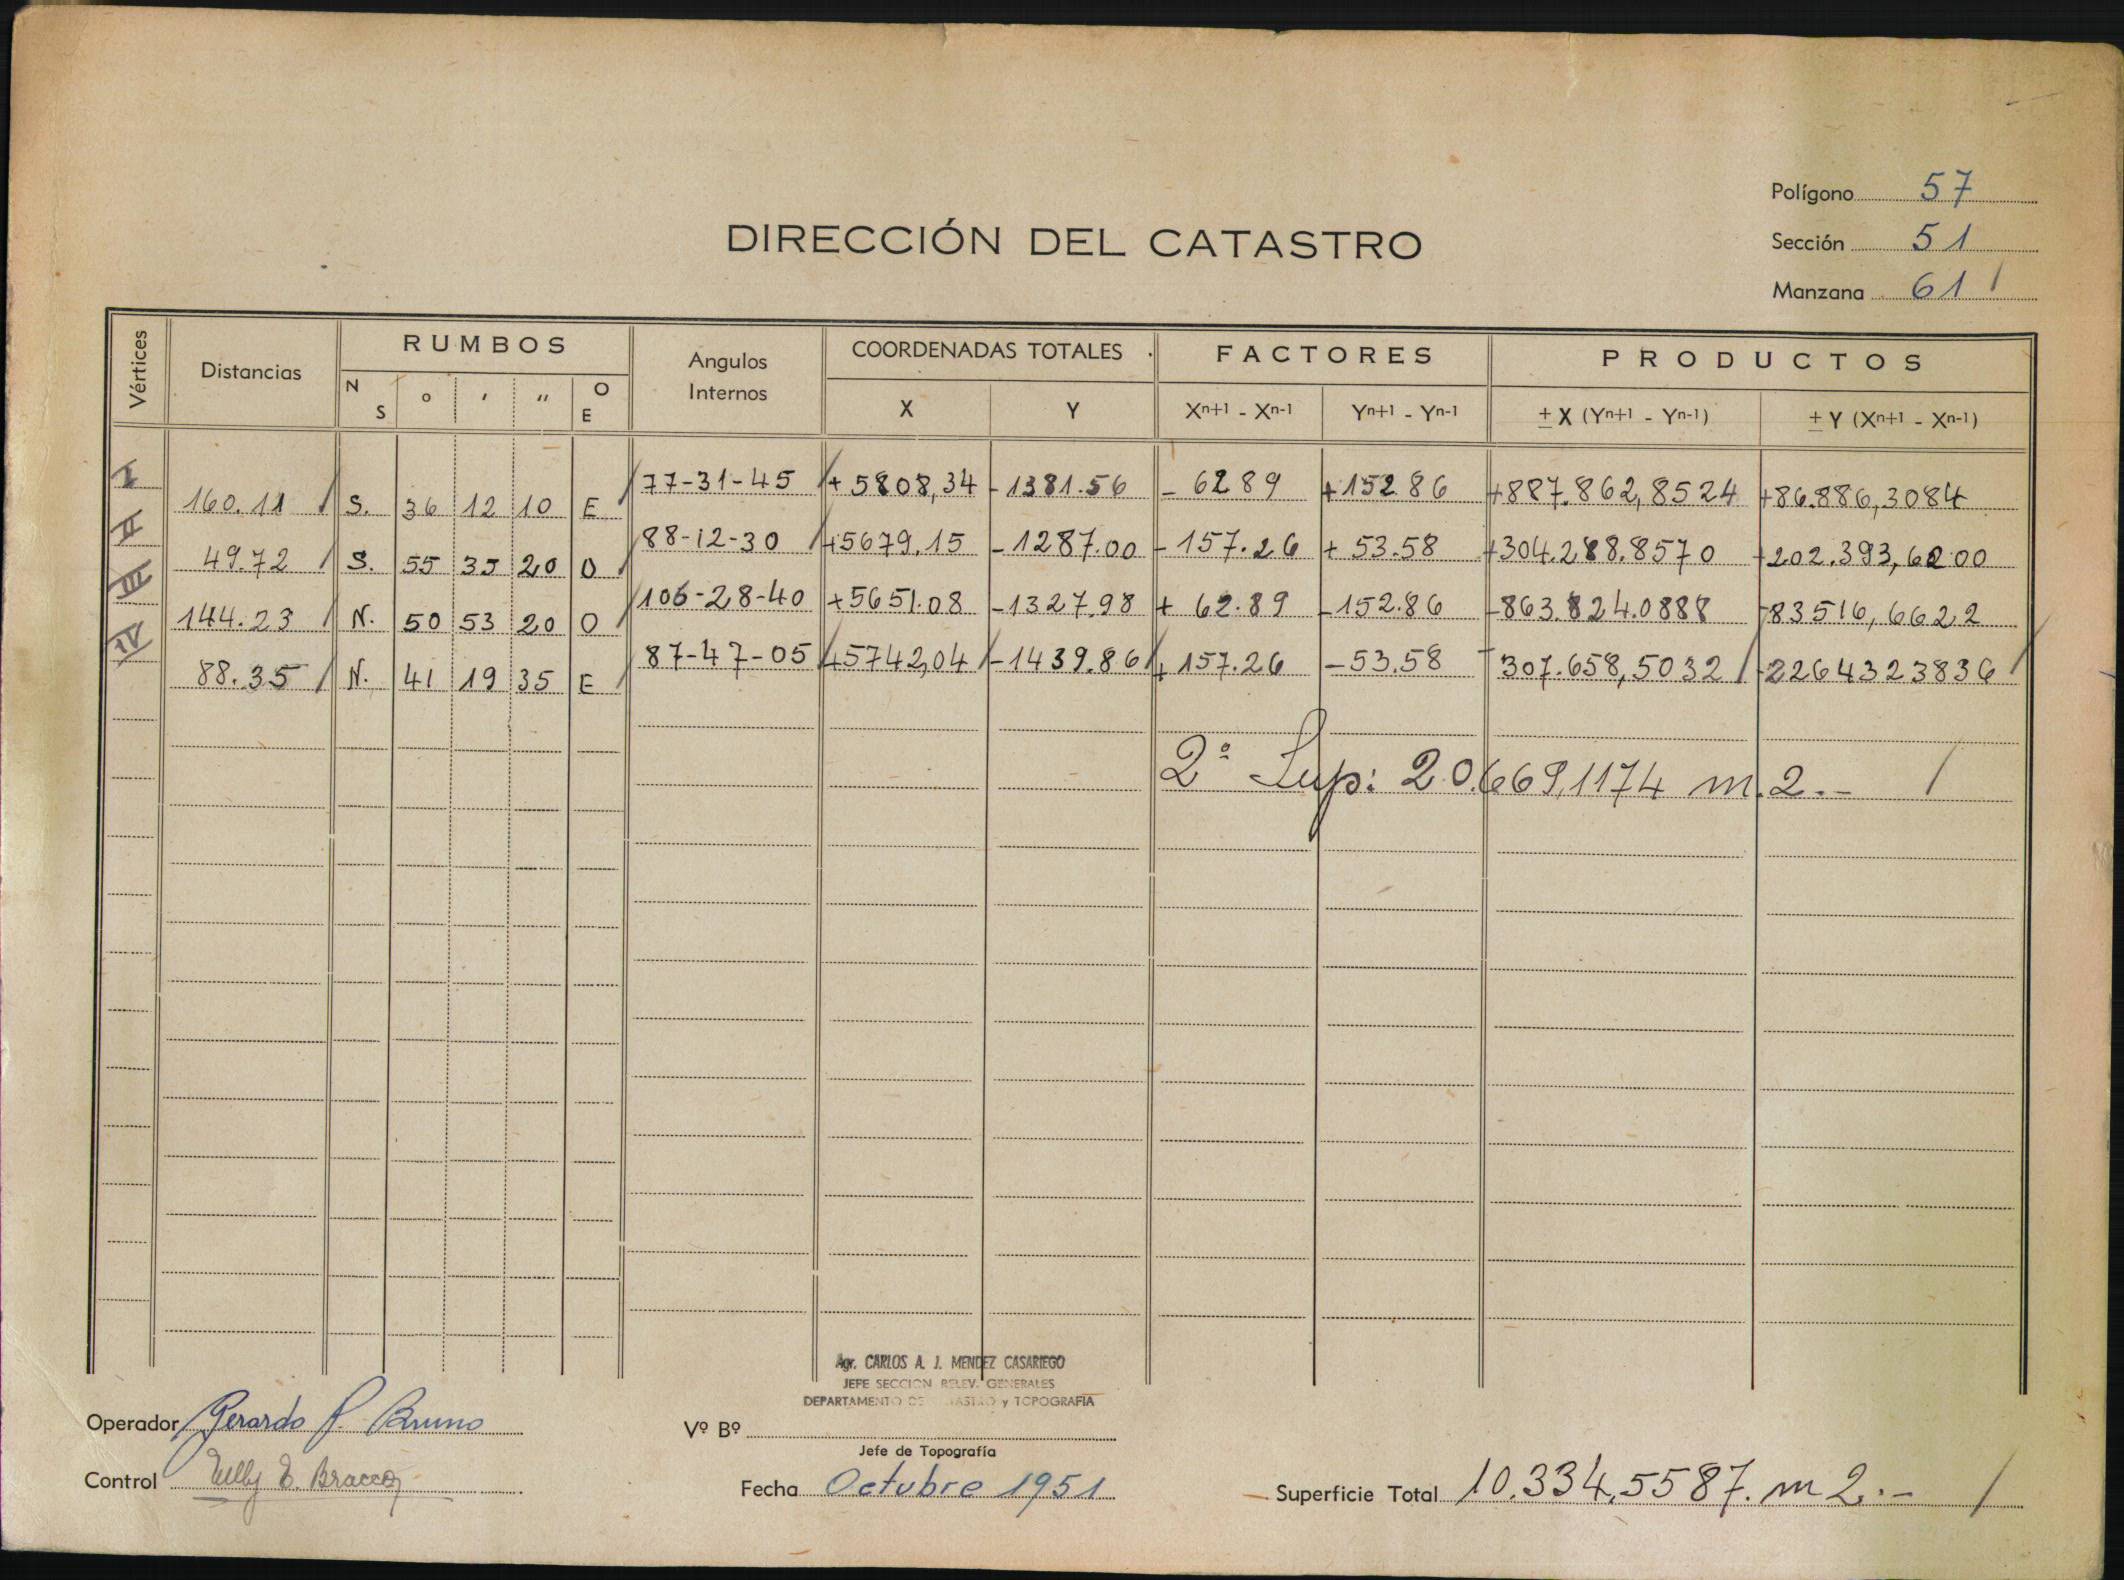 Polígono 57
DIRECCIÓN DEL CATASTRO
Sección 51
Manzana 61
Vértices Distancias RUMBOS Angulos Internos COORDENADAS TOTALES FACTORES PRODUCTOS
N S ° ′ ″ O E X Y Xn+1 - Xn-1 Yn+1 - Yn-1 ± X (Yn+1 - Yn-1) ± Y (Xn+1 - Xn-1)
I 77-31-45 +5808,34 -1381.56 - 6289 +152.86 +887.862,8524 +86.886,3084
160.11 S. 36 12 10 E
II 88-12-30 +5679.15 -1287.00 - 157.26 + 53.58 +304.288.8570 +202.393,6200
49.72 S. 55 35 20 O
III 106-28-40 +5651.08 -1327.98 + 62.89 -152.86 -863.824.0888 -83516,6622
144.23 N. 50 53 20 O
IV 87-47-05 +5742,04 -1439.86 +157.26 -53.58 -307.658,5032 -2264323836
88.35 N. 41 19 35 E
2ª Sup: 20.669,1174 m.2.-
Agr. CARLOS A. J. MENDEZ CASARIEGO
JEFE SECCION RELEV. GENERALES
DEPARTAMENTO DE CATASTRO y TOPOGRAFIA
Operador Gerardo P. Bruno
Vº Bº
Jefe de Topografía
Control Nelly E. Bracco
Fecha Octubre 1951
Superficie Total 10.334,5587. m2.-